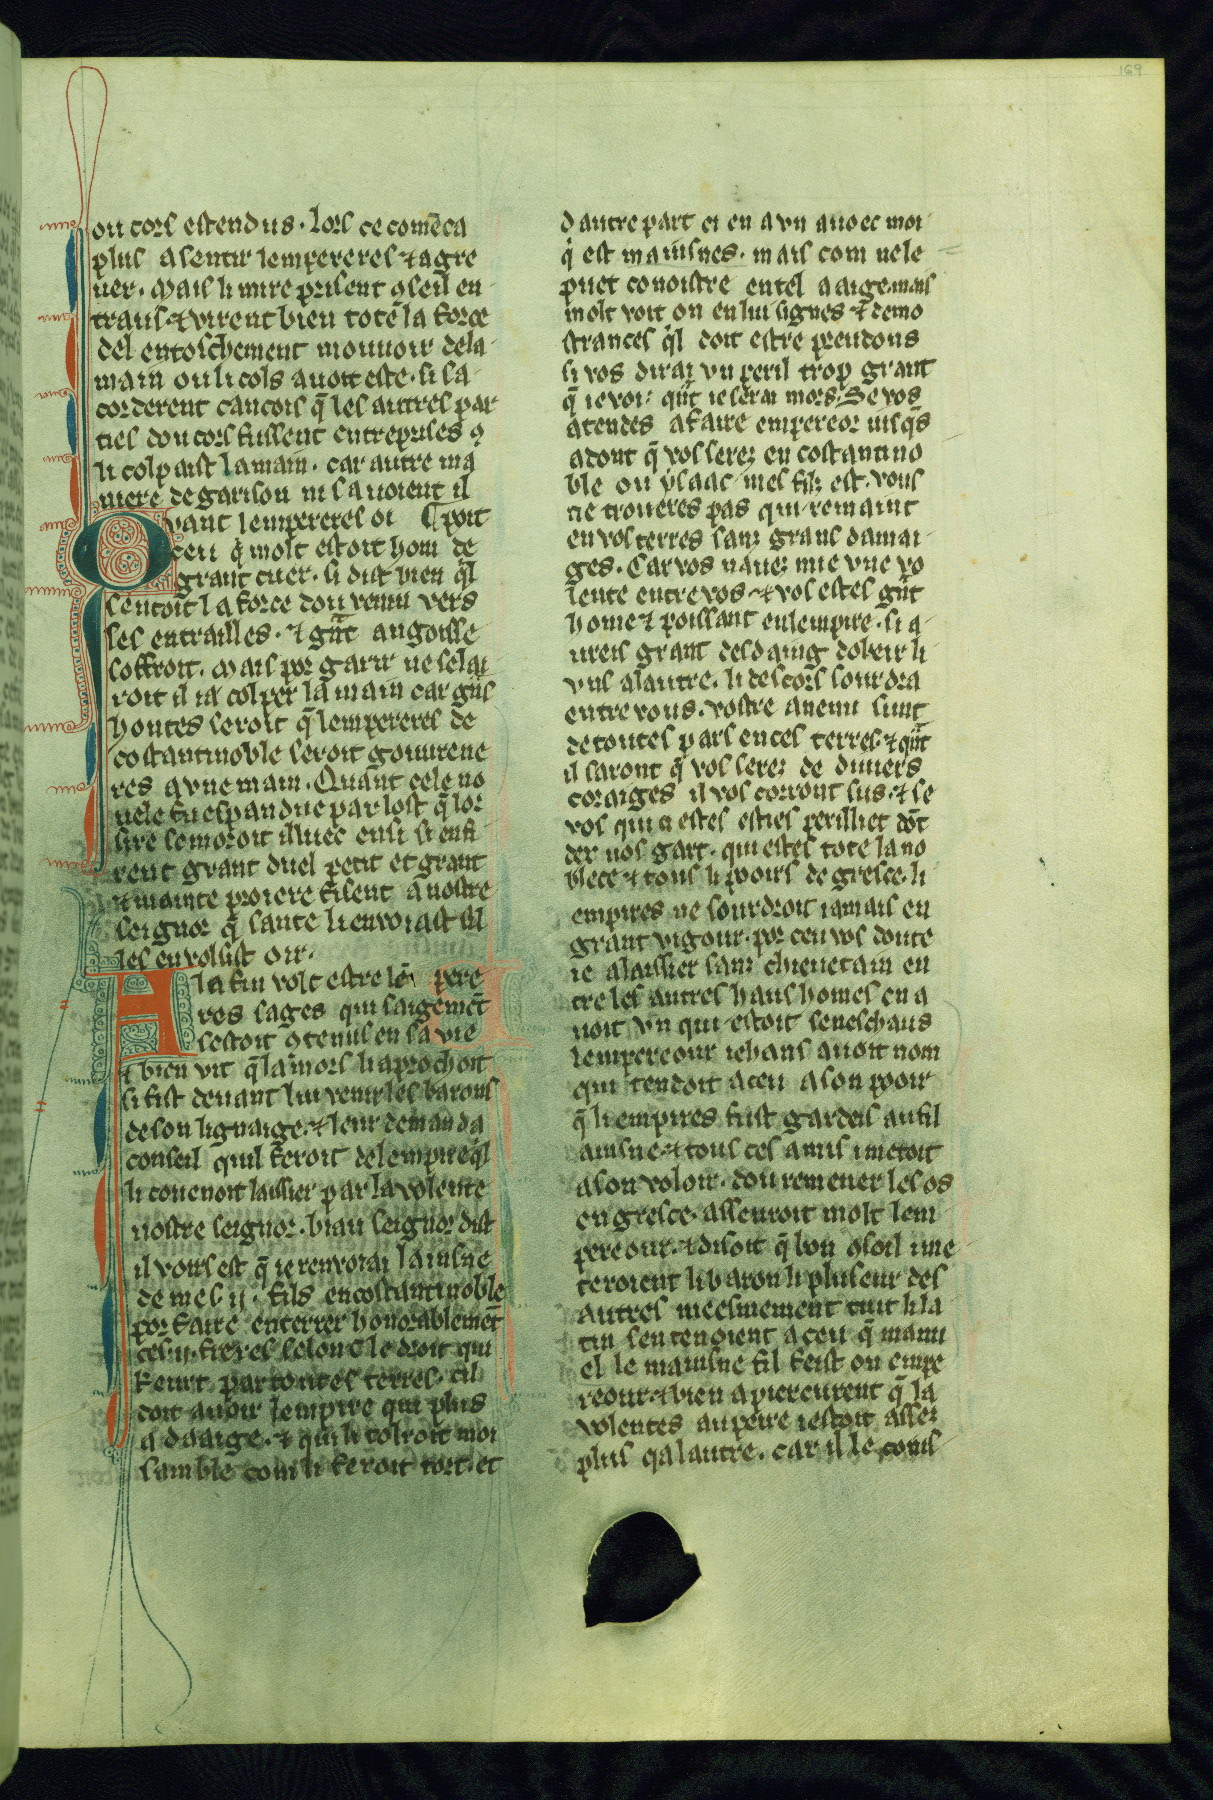 169
ou cors estendus. lors ce comēca
plus a sentir lempereres ⁊ agre
uer. Mais li mire prisent ꝯseil en
traus ⁊ virent bien tote la force
del entoschement mouuoir de la
main ou li cols auoit este. si sa
corderent cancois q̄ les autres par
ties dou cors fussent entreprises ꝯ
li colpaist la main. car autre ma
niere de garison ni sauoient il
Qvant lempereres oi ¶ port
ceu q̇ molt estoit hom de
grant cuer. si dist bien q̇l
sentoit la force dou venin vers
ses entrailles. ⁊ gn̄t angoisse
soffroit. Mais por garir ne se lai
roit il ia colper la main car gn̄s
hontes seroit q̄ lempereres de
costantinoble seroit gouurene
res a vne main. Quant cele no
uele fu espandue par lost q̄ lor
sire se moroit illuec ensi si en fi
rent grant duel petit et grant
⁊ mainte proiere fisent a nostre
seignor q̄ sante li enuoiast sil
les en volsist oir.
A la fin volt estre lē pere
res sages qui saigemēt
sestoit ꝯtenus en sa vie
⁊ bien vit q̄ la mors li aprochoit
si fist deuant lui venir les barons
de son lignaige. ⁊ leur demanda
conseil quil feroit de lempire q̇l
li couenoit laissier par la volente
nostre seignor. biau seignor dist
il voirs est q̄ ie renvoiai lainsne
de mes .ij. fils en costantinoble
por faire enterrer honorablemēt
ces .ij. freres selonc le droit qui
keurt par toutes terres. cil
doit auoir lempire qui plus
a daaige. ⁊ qui li tolroit moi
samble com li feroit tort. et
dautre part ci en a vn auoec moi
q̇ est mainsnes. mais com ne le
puet conoistre en tel aaige. mais
molt voit on en lui signes ⁊ demo
strances q̇l doit estre preudons
si vos dirai vn peril trop grant
q̄ ie voi. qn̄t ie serai mors. Se vos
atendes a faire empereor iusq̇s
adont q̄ vos serez en costantino
ble ou ysaac mes filz est. vous
ne troueres pas qui remaint
en vos terres sanz grans damai
ges. Car vos nauez mie vne vo
lente entre vos. ⁊ vos estes gn̄t
home ⁊ poissant en lempire. si a
ureis grant desdaing dobeir li
vns a lautre. li descors sourdra
entre vous. vostre anemi sunt
de toutes pars en ces terres. ⁊ qn̄t
il saront q̄ vos serez de diuers
coraiges il vos corront sus. ⁊ se
vos qui ci estes esties perilliet dōt
der nos gart. qui estes tote la no
blece ⁊ tous li pooirs de gresce. li
empires ne sourdroit iamais en
grant vigour. por ceu vos doute
ie a laissier sanz chieuetain en
tre les autres haus homes en a
uoit vn qui estoit seneschaus
lempereour iehans auoit nom
qui tendoit a ceu a son pooir
q̄ li empires fust gardeis au fil
ainsne. ⁊ tous ces amis i metoit
a son voloir. dou remener les os
en gresce. asseuroit molt lem
pereour. ⁊ disoit q̄ bon ꝯsoil i me
teroient li baron li pluseur des
autres meesmement tuit li la
tin sentenoient a ceu q̄ manu
el le mainsne fil feist on empe
reour. ⁊ bien apierceurent q̄ la
volentes au peire i estoit assez
plus qa lautre. car il le conis